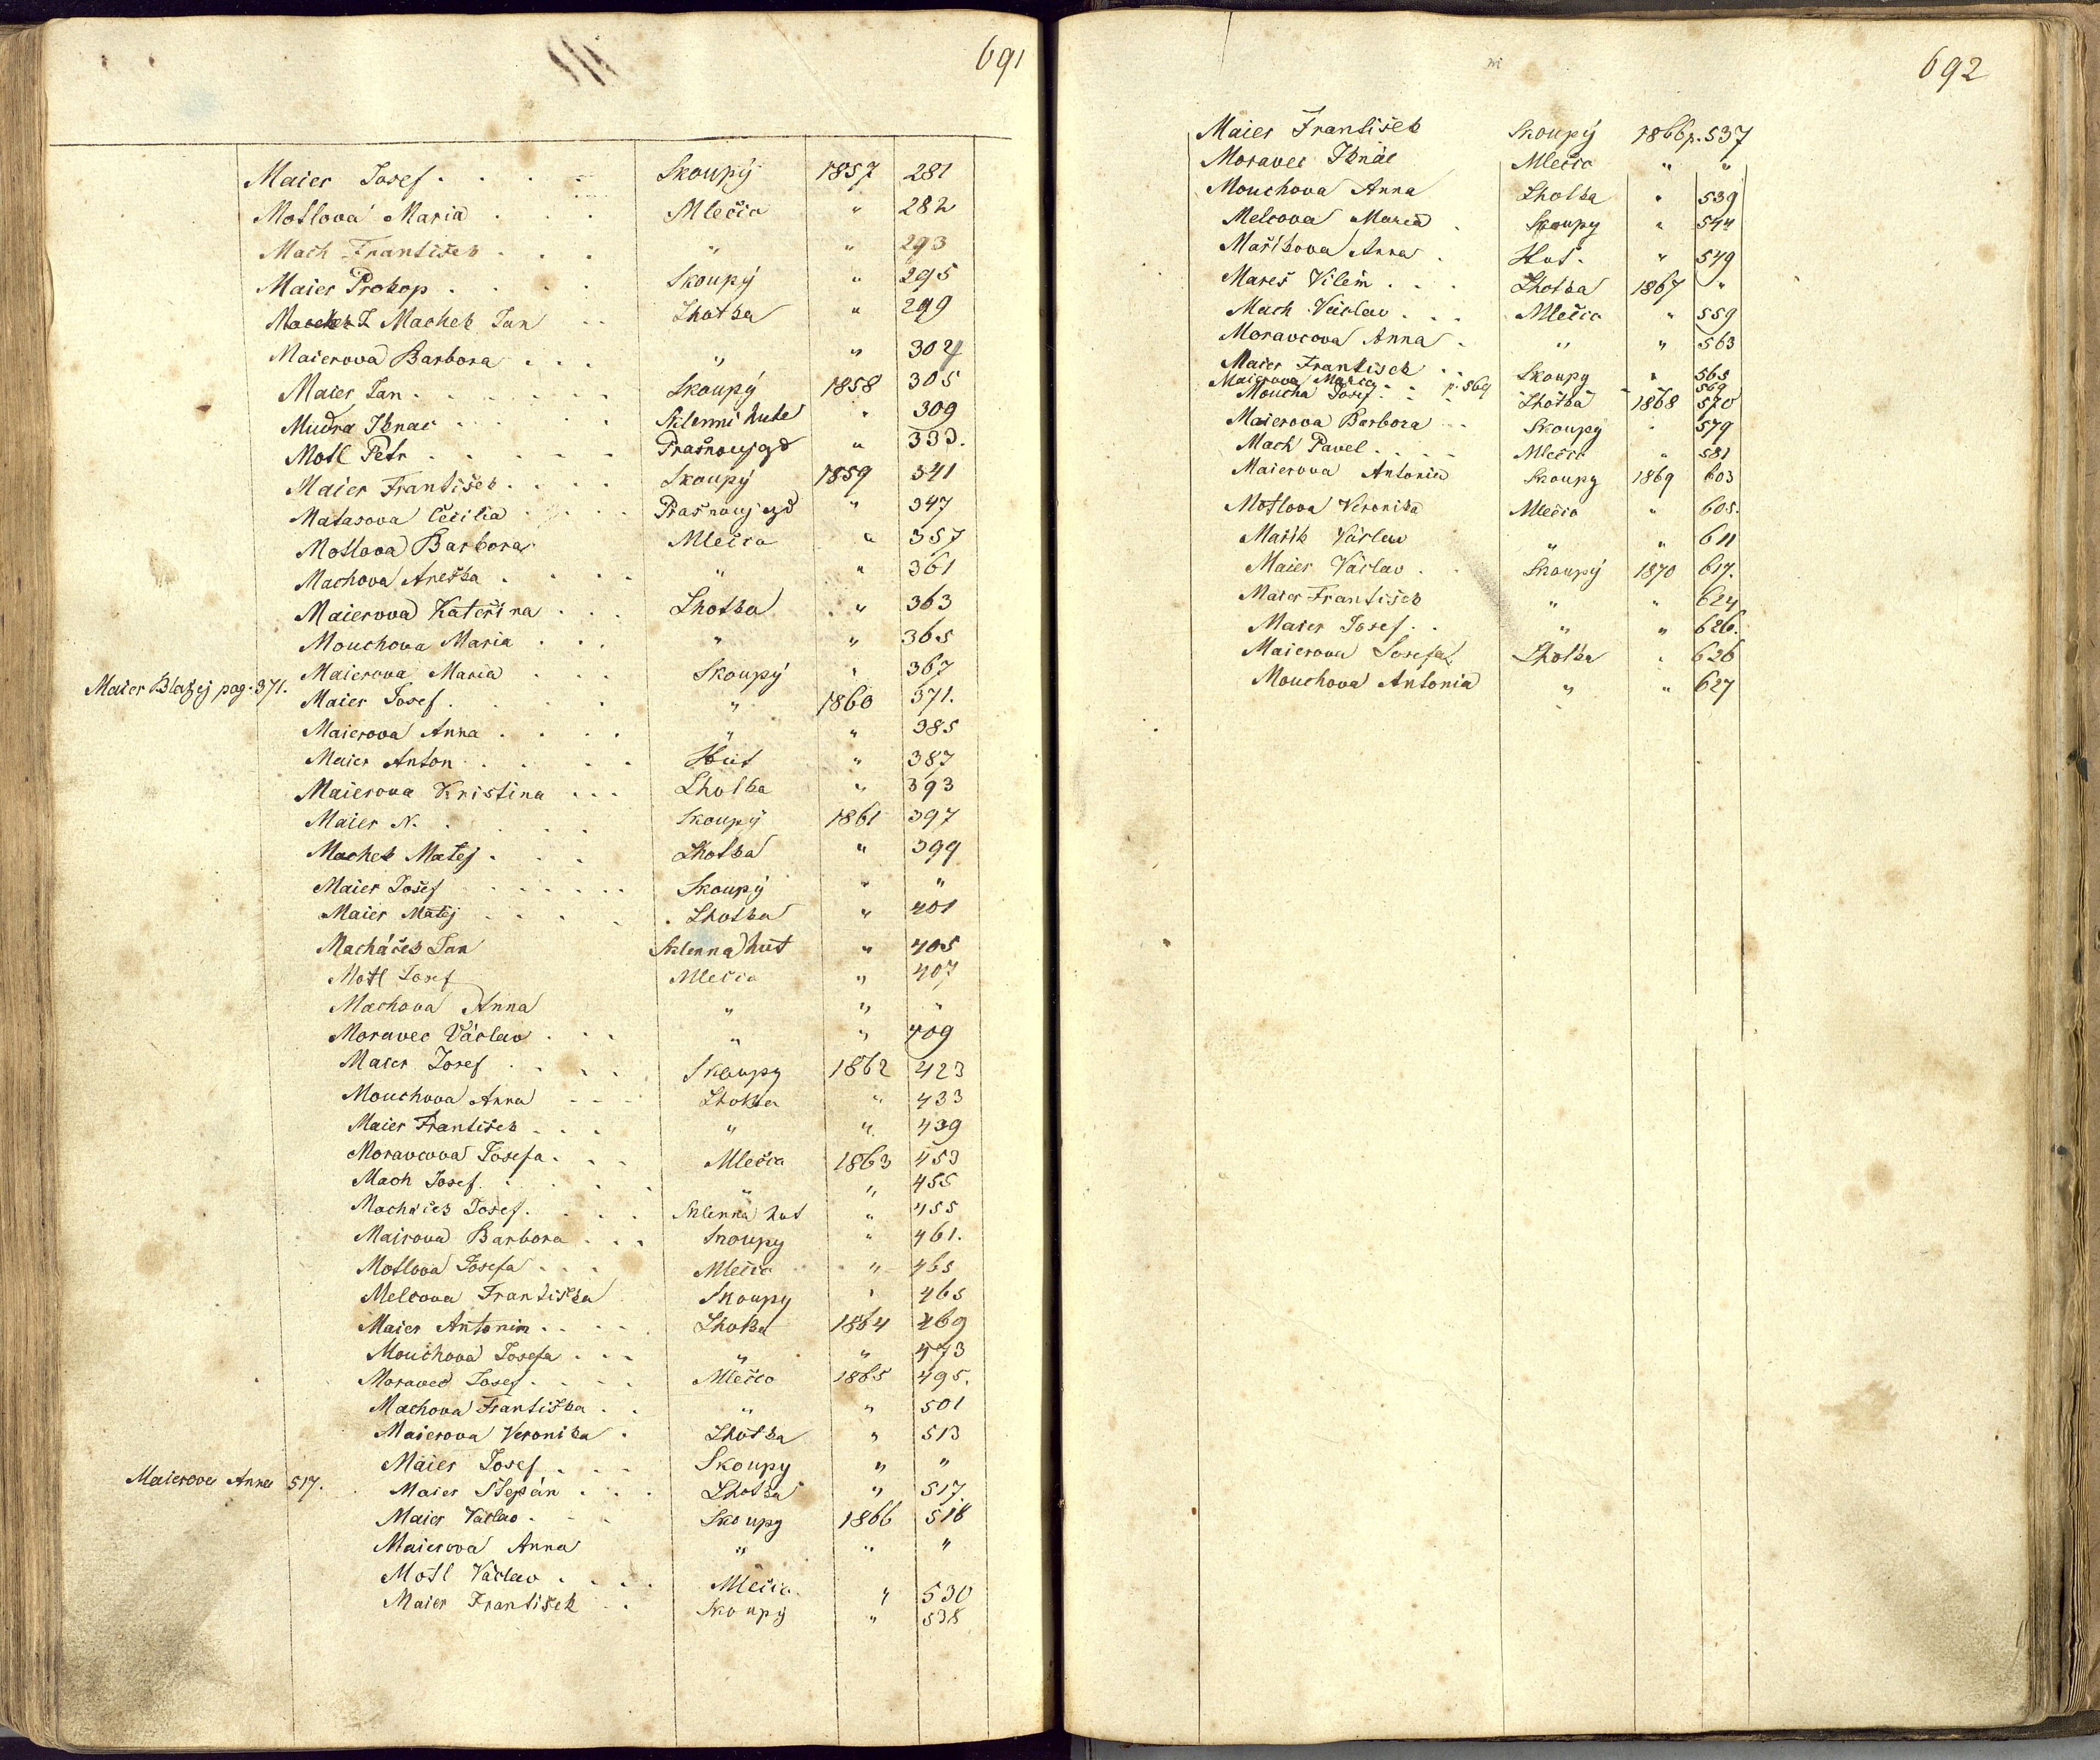 691
Maier Josef . . . . Skoupý 1857 281
Motlová Maria . . . Mlečic " 282
Mach František . . . " " 293
Maier Prokop . . . . Skoupý " 295
Machek Jan . . Lhotka " 299
Maierova Barbora . . . " " 304
Maier Jan . . . . . . Skoupý 1858 305
Mudra Ignac . . . . Sklenni hutě " 309
Motl Petr . . . . . Prašnoujezd " 333.
Maier František . . . . Skoupý 1859 341
Matasova Cecilia . . . . Prašnoujezd " 347
Motlova Barbora Mlečic " 357
Machova Anežka . . . . " " 361
Maierova Kateřina . . . Lhotka " 363
Mouchova Maria . . . " " 365
Maierova Maria . . . Skoupý " 367
Maier Blažej pag. 371.
Maier Josef . . . . " 1860 371.
Maierova Anna . . . . " " 385
Maier Anton . . . . Huť " 387
Maierova Kristina . . . Lhotka " 393
Maier N. . . . . Skoupý 1861 397
Machek Matej . . . Lhotka " 399
Maier Josef . . . . . . Skoupý " "
Maier Matěj . . . . . Lhotka " 401
Macháček Jan Sklenna huť " 405
Motl Josef Mlečic " 407
Machova Anna " " "
Moravec Václav . . . " " 409
Maier Josef . . . . Skoupy 1862 423
Mouchova Anna - - - Lhotka " 433
Maier František . . . " " 439
Moravcova Josefa . . . Mlečic 1863 453
Mach Josef . . . . . " " 455
Macháček Josef . . . . Sklenna hut " 455
Mairova Barbora . . . Skoupy " 461.
Motlova Josefa . . . Mlečic " 465
Melcova Františka Skoupy " 465
Maier Antonin . . . . Lhotka 1864 469
Mouchova Josefa . . . " " 473
Moravec Josef . . . . Mlečic 1865 495.
Machova Františka . . " " 501
Maierova Veronika . Lhotka " 513
Maier Josef . . . Skoupy " "
Maierova Anna 517.
Maier Štepán . . . Lhotka " 517
Maier Václav . . . Skoupy 1866 518
Maierova Anna " " "
Motl Václav . . . . Mlečic " 530
Maier František . . Skoupý " 538
692
Maier František Skoupý 1866 p. 537
Moravec Ignác Mlečic " "
Mouchova Anna Lhotka " 539
Melcova Maria . Skoupy " 544
Maříkova Anna . Huť. " 549
Mareš Vilém . . . Lhotka 1867 "
Mach Václav . . . Mlečic " 559
Moravcova Anna . " " 563
Maier František . . Skoupy " 565
Maierova Maria . . p. 569 569
Moucha Josef . . . Lhotka 1868 570
Maierova Barbora . . Skoupy " 579
Mach Pavel . . . . Mlečic " 581
Maierova Antonia Skoupy 1869 603
Motlova Veronika Mlečic " 605.
Mařík Václav " " 611
Maier Václav . . Skoupý 1870 617.
Maier František " " 624
Maier Josef . . " " 626.
Maierova Josefa Lhotka " 626
Mouchova Antonia " " 627